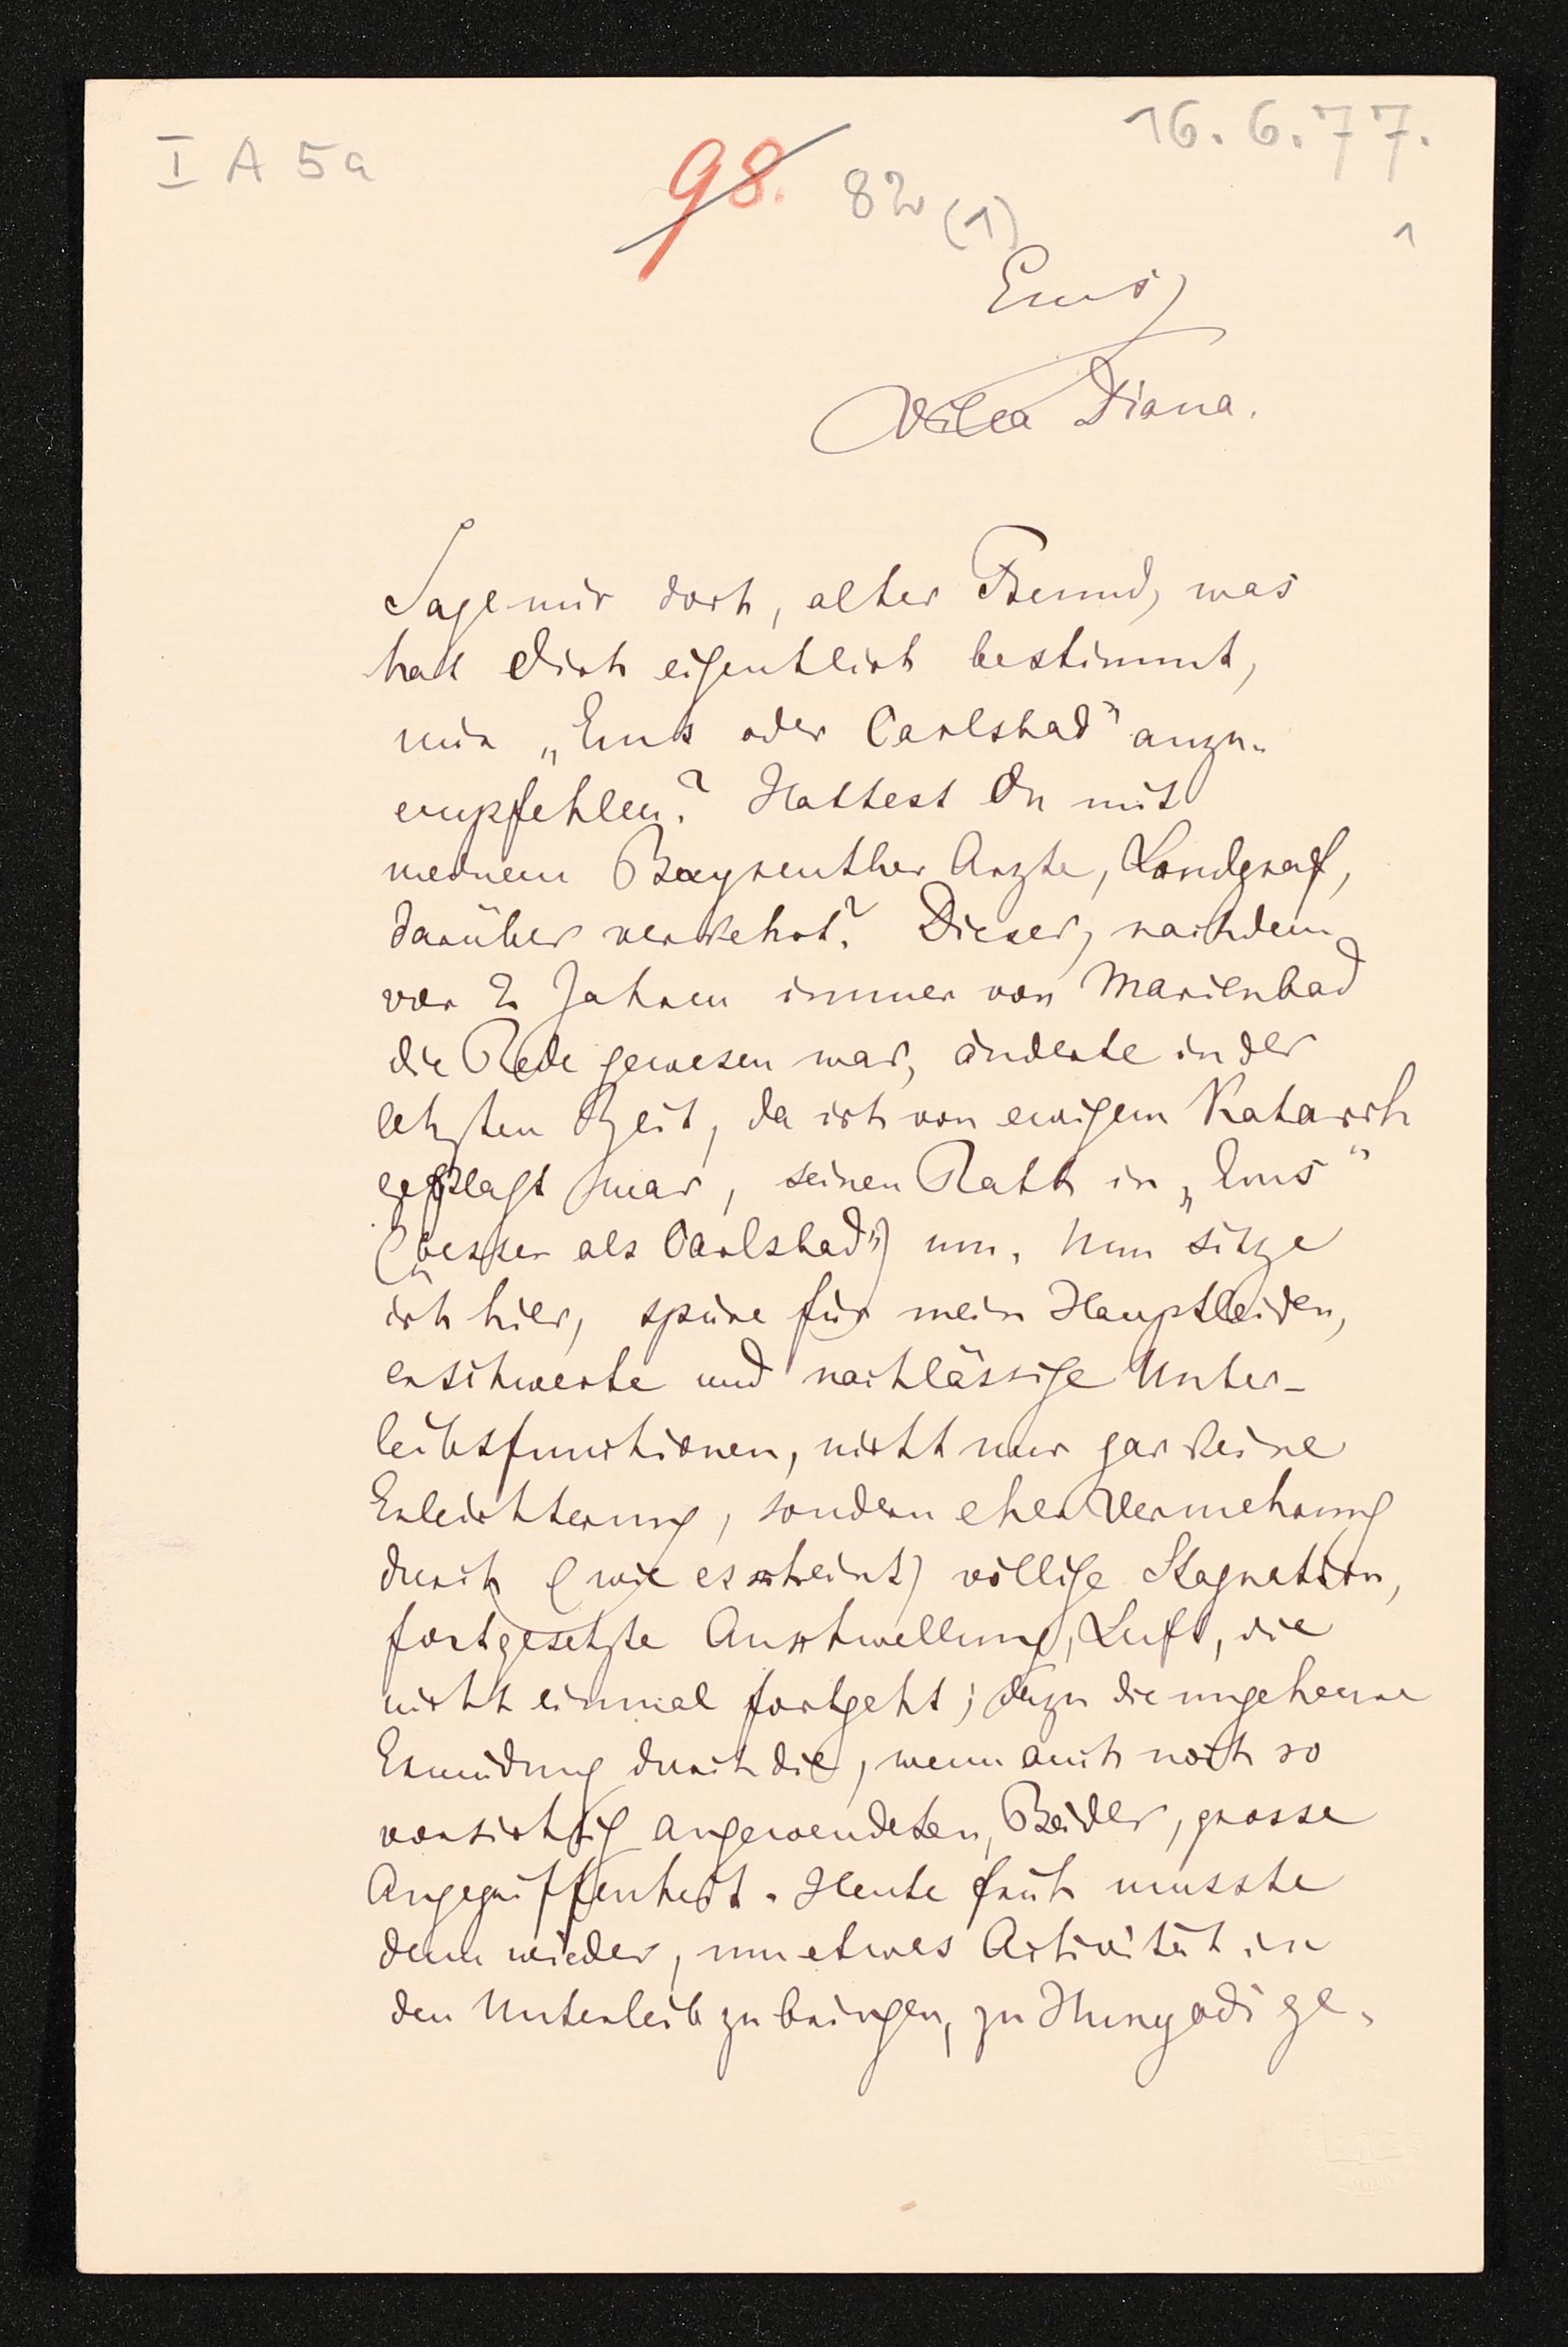 I A 5a
98.
82 (1)
16.6.77.
1
Ems,
Villa Diana.
Sage mir doch, alter Freund, was
hat Dich eigentlich bestimmt,
mir „Ems oder Carlsbad" anzu-
empfehlen? Hattest Du mit
meinem Bayreuther Arzte, Landgraf,
darüber verkehrt? Dieser, nachdem
vor 2 Jahren immer von Marienbad
die Rede gewesen war, änderte in der
letzten Zeit, da ich von ewigem Katarrh
geplagt war, seinen Rath in „Ems"
(„besser als Carlsbad") um. Nun sitze
ich hier, spüre für mein Hauptleiden,
erschwerte und nachlässige Unter-
leibsfunctionen, nicht nur gar keine
Erleichterung, sondern eher Vermehrung
durch (wie es scheint) völlige Stagnation,
fortgesetzte Anschwellung, Luft, die
nicht einmal fortgeht; dazu die ungeheure
Ermüdung durch die, wenn auch noch so
vorsichtig angewendeten, Bäder, grosse
Angegriffenheit. Heute früh musste
denn wieder, um etwas Activität in
den Unterleib zu bringen, zu Hunyadi ge-